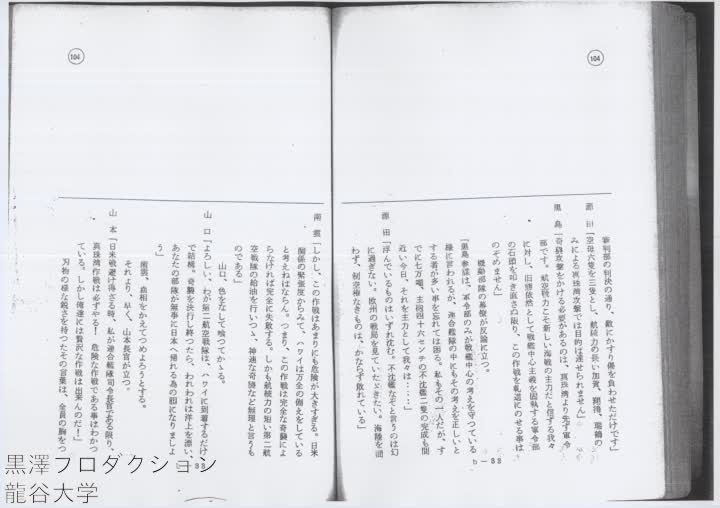 104
審判部の判決の通り、敵にかすり傷を負わせただけです」
源田「空母六隻を三隻とし、航続力の長い加賀、翔鶴、瑞鶴の
みによる真珠湾攻撃では目的は達せられません」
黒島「奇襲攻撃をかける必要があるのは、真珠湾より先ず軍令
部です。航空戦力こそ新しい海戦の主力だと信ずる我々
に対し、旧態依然として戦艦中心主義を固執する軍令部
の石頭を叩き直さぬ限り、この作戦を軌道にのせる事は
のぞめません」
機動部隊の幕僚が反論に立つ。
「黒島参謀は、軍令部のみが戦艦中心の考えを守つている
様に言われるが、連合艦隊の中にもその考えを正しいと
する者が多い事を忘れては困る。私もその一人だが、す
でに七万噸、主砲四十六センチの不沈艦二隻の完成も間
近い今日、それを主力として我々は‥‥‥」
源田「浮んでいるものはいずれ沈む。不沈艦などと言うのは幻
に過ぎない。欧州の戦局を見ていたゞきたい。海陸を問
わず、制空権なきものは、かならず敗れている」
b-38
104
南雲「しかし、この作戦はあまりにも危険が大きすぎる。日米
関係の緊張度からみて、ハワイは万全の備えをしている
と考えねばならん。つまり、この作戦は完全な奇襲によ
らなければ完全に失敗する。しかも航続力の短い第二航
空戦隊の給油を行いつゝ、神速な奇襲など無理と言うも
のである」
山口、色をなして喰つてかゝる。
山口「よろしい、わが第二航空戦隊は、ハワイに到着するだけ
で結構。奇襲を決行し終つたら、われわれは洋上を漂い、
あなたの部隊が無事に日本へ帰れる為の囮になりましよ
う」
南雲、血相をかえてつめよろうとする。
それより、早く、山本長官が立つ。
山本「日米戦避け得ざる時、私が連合艦隊司令長官である限り、
真珠湾作戦は必ずやる！危険な作戦である事はわかつ
ている。しかし俺達には贅沢な作戦は出来んのだ！」
刃物の様な鋭さを持つたその言葉は、全員の胸をつ
38
黒澤プロダクション
龍谷大学